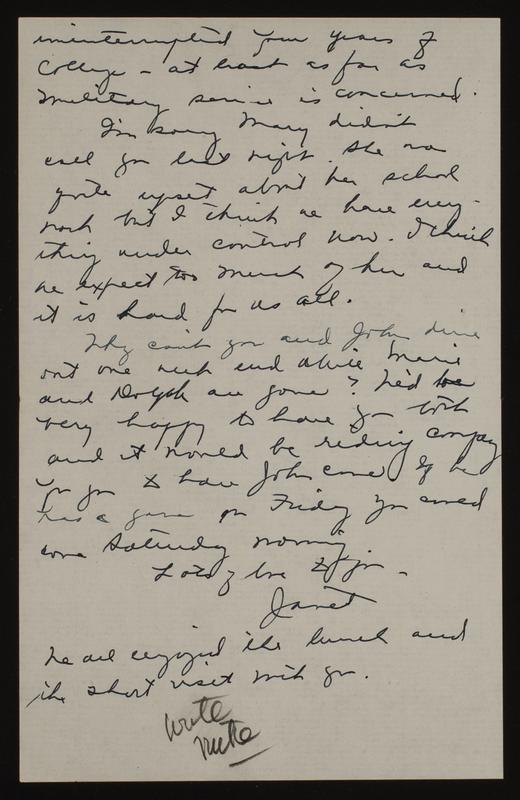 uninterrupted four years of
College - at least as far as
military service is concerned.
I'm sorry Mary didn't
call you last night. She was
quite upset about her school
work but I think we have every-
thing under control now. I think
we expect too much of her and
it is hard for us all.
Why can't you and John drive
out one week end while Marie
and Dolph are gone? We'd be
very happy to have you both
and it would be riding company
for you to have John come. If he
has a game on Friday you could
come Saturday morning.
Lots of love to you -
Janet
We all enjoyed the lunch and
the short visit with you.
write